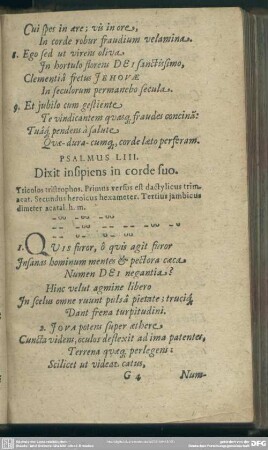 Cui spes in ære; vis in ore,
In corde robur fraudium velamina.
8. Ego sed ut virens oliva
In hortulo florens DEI sanctissimo,
Clementiâ fretus JEHOVÆ
In seculorum permanebo secula.
9. Et jubilo cum gestiente
Te vindicantem quæq; fraudes concinā:
Tuâq; pendens à salute
Quæ-dura-cumq; corde læto perferam.
PSALMUS LIII.
Dixit insipiens in corde suo.
Tricolos tristrophos. Prioris versus est dactylicus trim.
acat. Secundus heroicus hexameter. Tertius jambicus
dimeter acatal. h. m.
1. QUIS furor, ô quis agit furor
Insanas hominum mentes & pectora cæca
Numen DEI negantia?
Hinc velut agmine libero
In scelus omne ruunt pulsâ pietate; trucíq;
Dant frena turpitudini.
2. JOVA potens super æthere
Cuncta videns, oculos deflexit ad ima patentes,
Terrena quæq; perlegens:
Scilicet ut videat catus,
G 4 Num-